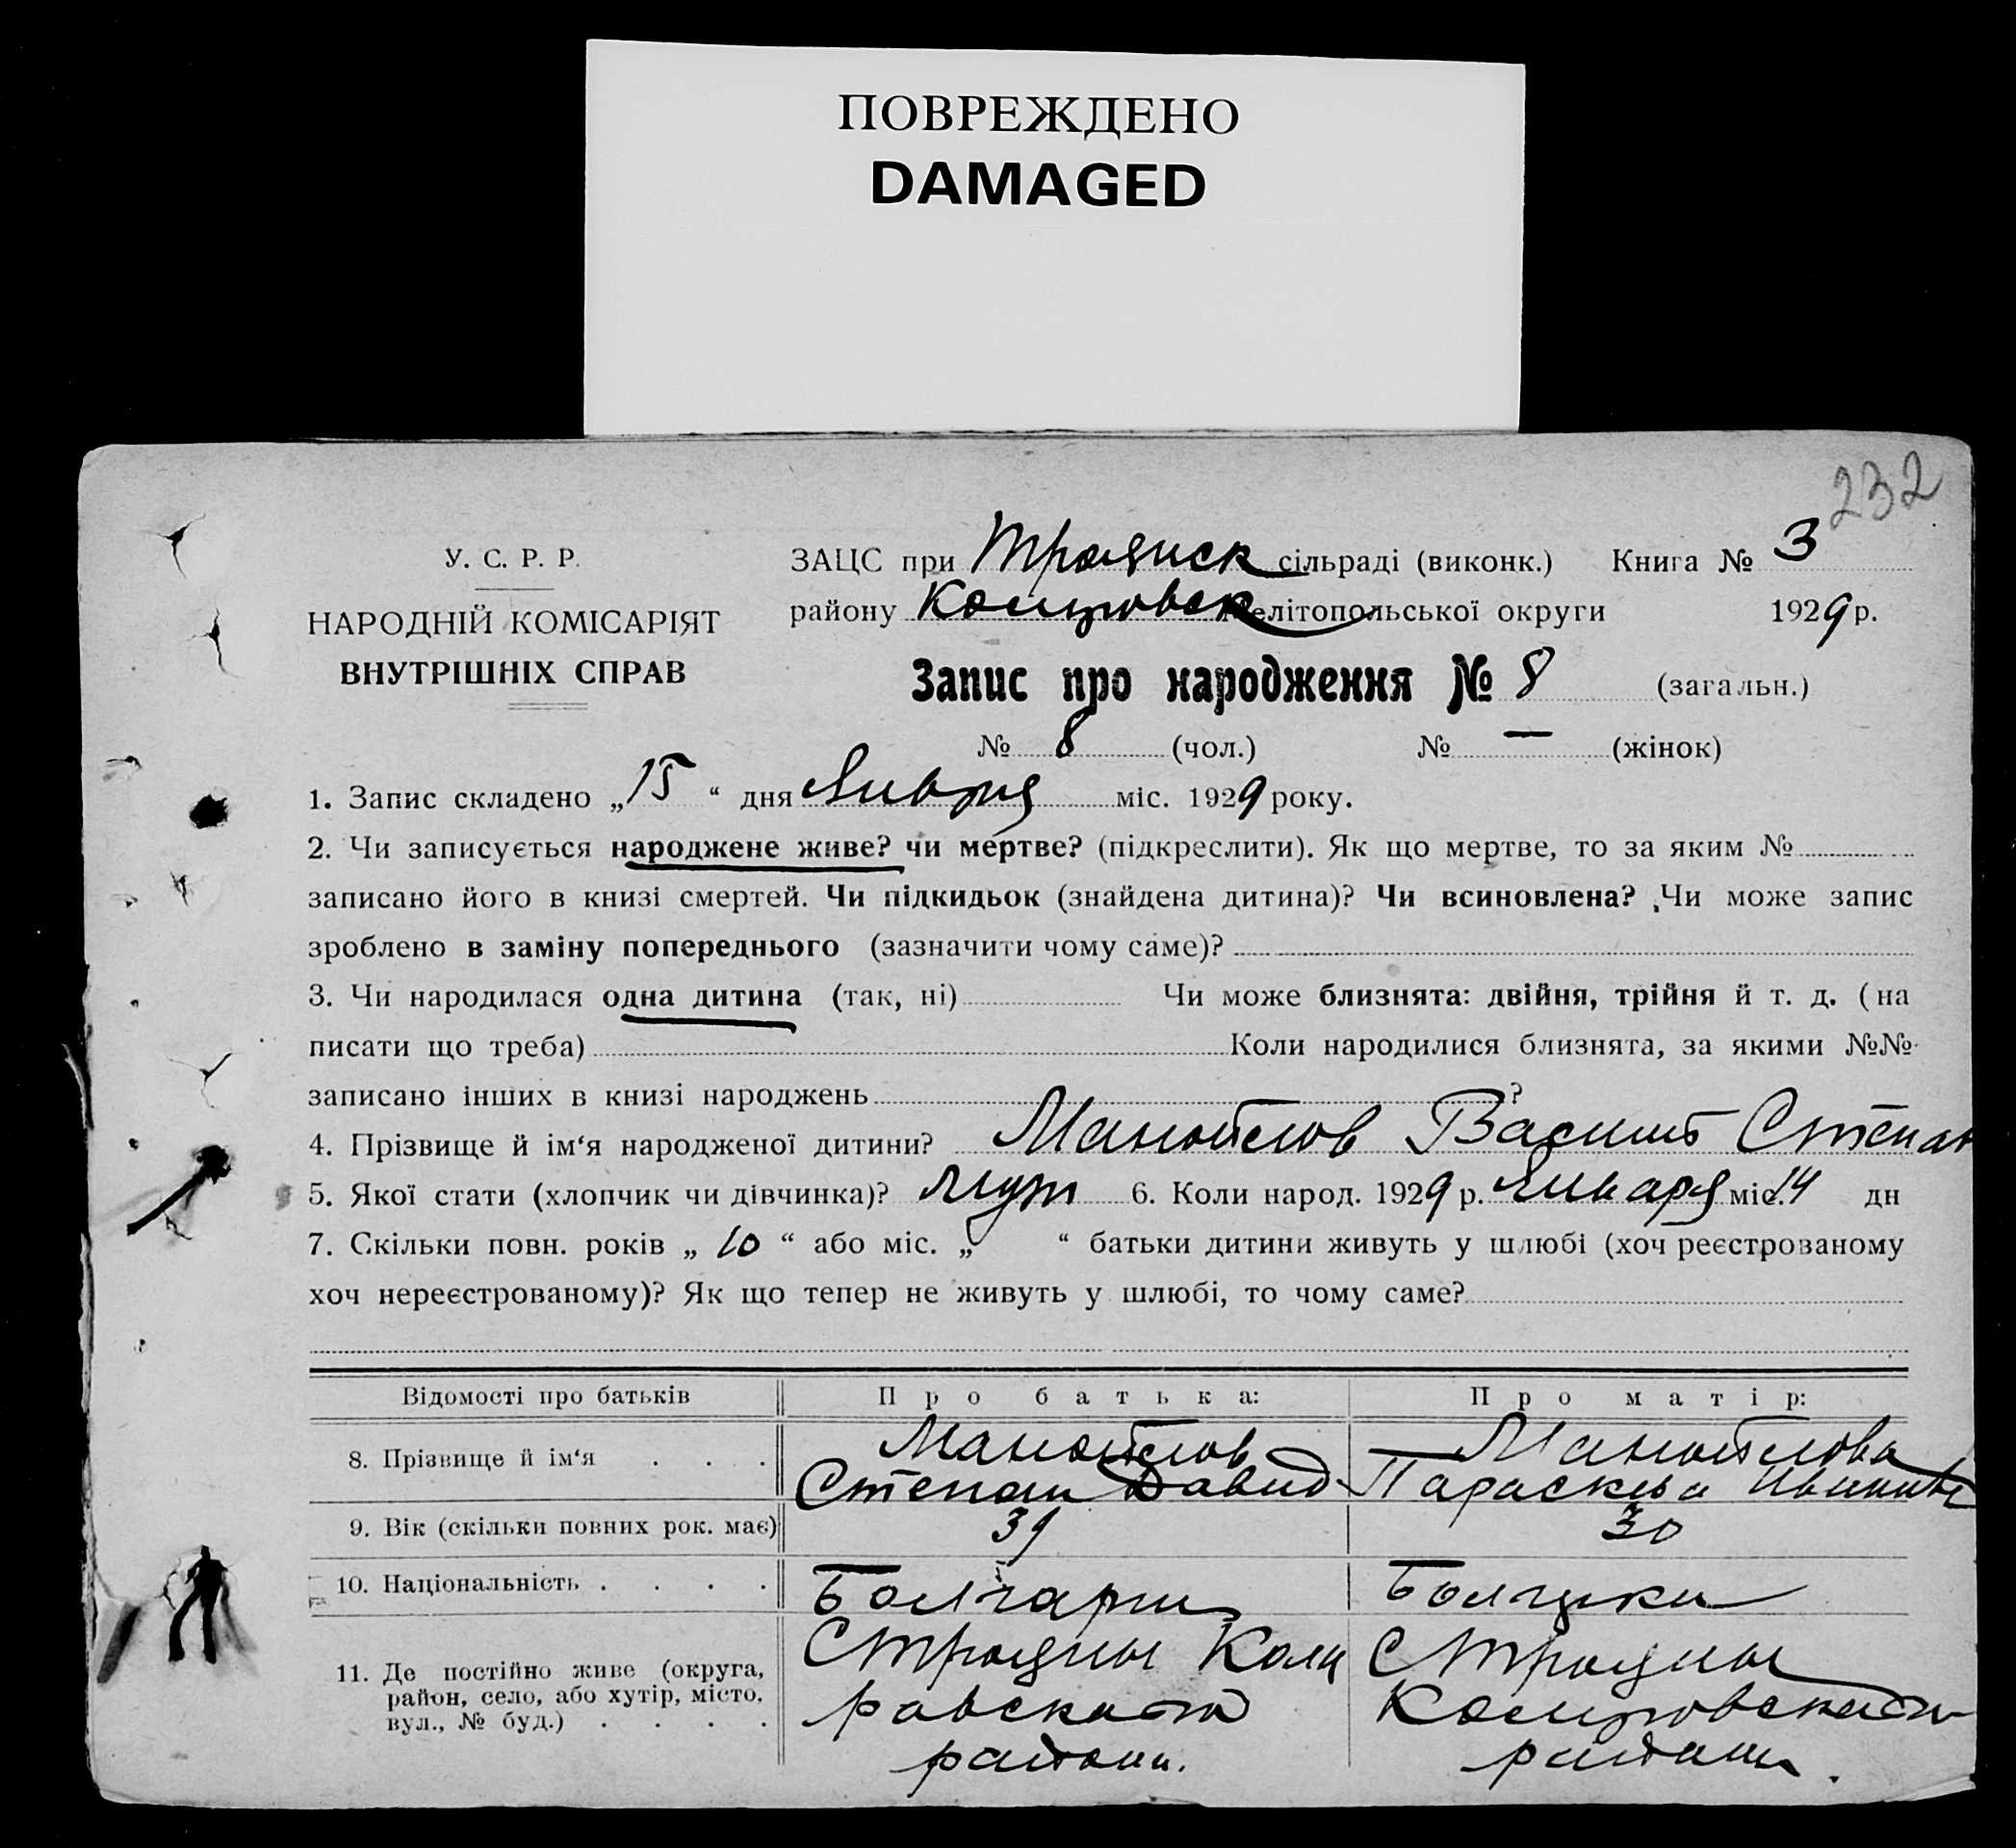 ПОВРЕЖДЕНО
DAMAGED
232
У. С. Р. Р.
НАРОДНІЙ КОМІСАРІЯТ
ВНУТРІШНІХ СПРАВ
ЗАЦС при Троянск сільраді (виконк.) Книга № 3
району Коларовск Мелітопольської округи 1929 р.
Запис про народження № 8 (загальн.)
№ 8 (чол.) № — (жінок)
1. Запис складено „15“ дня Января міс. 1929 року.
2. Чи записується народжене живе? чи мертве? (підкреслити). Як що мертве, то за яким №
записано його в книзі смертей. Чи підкидьок (знайдена дитина)? Чи всиновлена? Чи може запис
зроблено в заміну попереднього (зазначити чому саме)?
3. Чи народилася одна дитина (так, ні) Чи може близнята: двійня, трійня й т. д. (на
писати що треба) Коли народилися близнята, за якими №№
записано інших в книзі народжень ?
4. Прізвище й ім‘я народженої дитини? Манойлов Василий Степан
5. Якої стати (хлопчик чи дівчинка)? муж 6. Коли народ. 1929 р. Января міс. 14 дн
7. Скільки повн. років „10“ або міс. „ “ батьки дитини живуть у шлюбі (хоч реєстрованому
хоч нереєстрованому)? Як що тепер не живуть у шлюбі, то чому саме?
Відомості про батьків Про батька: Про матір:
8. Прізвище й ім‘я . . . Манойлов Степан Давид Манойлова Параскева Ивановн
9. Вік (скільки повних рок. має) 39 30
10. Національність . . . . Болгарин Болгарка
11. Де постійно живе (округа,
район, село, або хутір, місто,
вул., № буд.) . . . .
С Трояны Кола
ровского
района.
С Трояны
Коларовского
района.